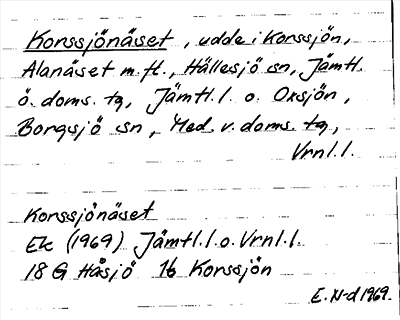 Korssjönäset, udde i Korssjön,
Alanäset m.fl., Hällesjö sn, Jämtl.
ö. doms. tg, Jämtl. l. o. Oxsjön,
Borgsjö sn, Med. v. doms. tg,
Vrnl. l.
Korssjönäset
Ek (1969) Jämtl. l. o. Vrnl. l.
18 G Håsjö 1b Korssjön
E. N-d 1969.